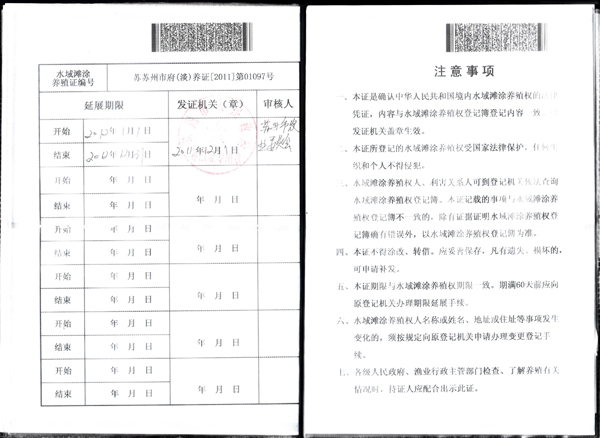 水域滩涂
养殖证编号
苏苏州市府(淡)养证[2011]第01097号
延展期限
发证机关(章)
审核人
开始
结束
2011年12月1日
开始 年 月 日
结束 年 月 日
年 月 日
开始 年 月 日
结束 年 月 日
年 月 日
开始 年 月 日
结束 年 月 日
年 月 日
开始 年 月 日
结束 年 月 日
年 月 日
开始 年 月 日
结束 年 月 日
年 月 日
注意事项
一、本证是确认中华人民共和国境内水域滩涂养殖权的法律
凭证,内容与水域滩涂养殖权登记簿登记内容一致,
发证机关盖章生效。
二、本证所登记的水域滩涂养殖权受国家法律保护,任何组
织和个人不得侵犯。
三、水域滩涂养殖权人、利害关系人可到登记机关依法查询
水域滩涂养殖权登记簿。本证记载的事项与水域滩涂养
殖权登记簿不一致的,除有证据证明水域滩涂养殖权登
记簿确有错误外,以水域滩涂养殖权登记簿为准。
四、本证不得涂改、转借,应妥善保存,凡有遗失、损坏的,
可申请补发。
五、本证期限与水域滩涂养殖权期限一致。期满60天前应向
原登记机关办理期限延展手续。
六、水域滩涂养殖权人名称或姓名、地址或住址等事项发生
变化的,须按规定向原登记机关申请办理变更登记手
续。
七、各级人民政府、渔业行政主管部门检查、了解养殖有关
情况时,持证人应配合出示此证。